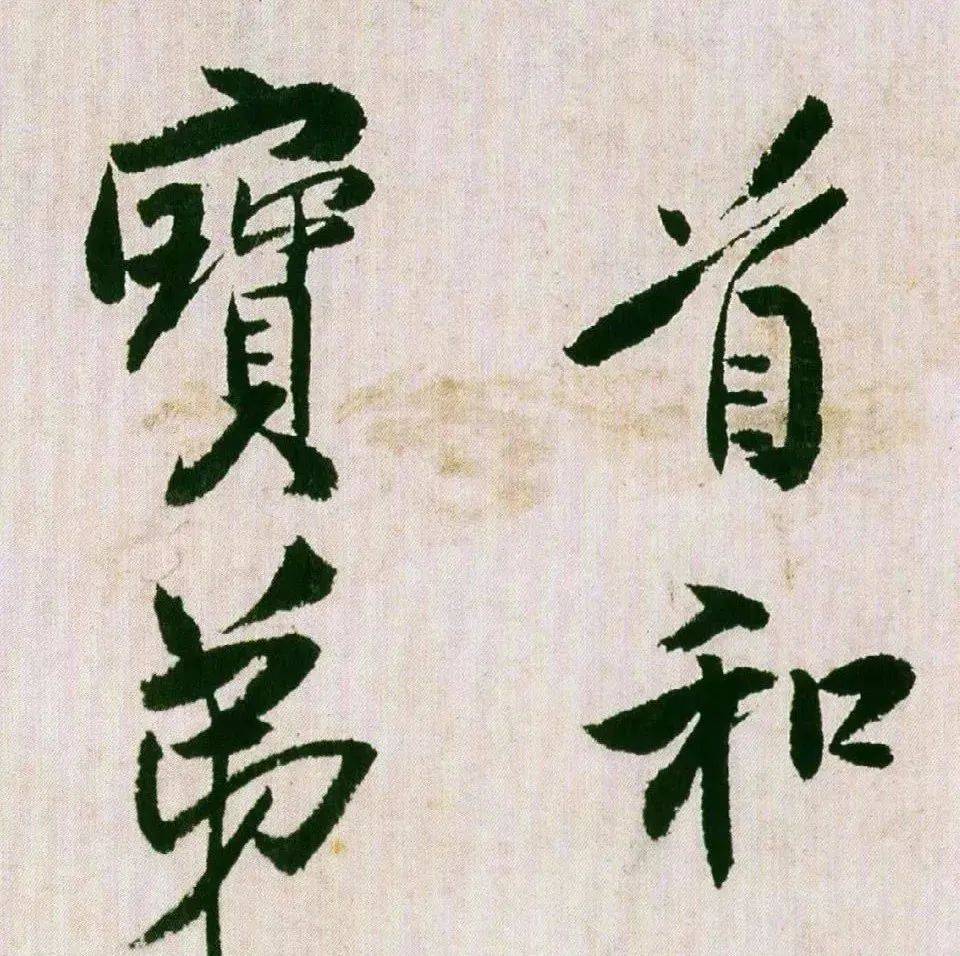 首和
寶弟